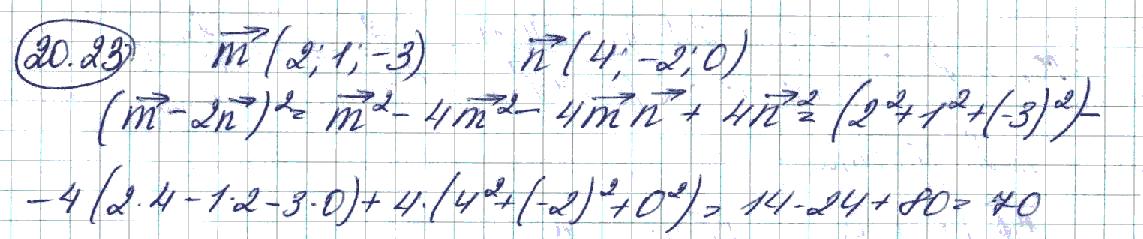 20.23 m⃗ (2; 1; -3) n⃗ (4; -2; 0)
(m⃗ - 2n⃗)² = m⃗² - 4m⃗² - 4m⃗n⃗ + 4n⃗² = (2² + 1² + (-3)²) -
- 4(2·4 - 1·2 - 3·0) + 4·(4² + (-2)² + 0²) = 14 - 24 + 80 = 70